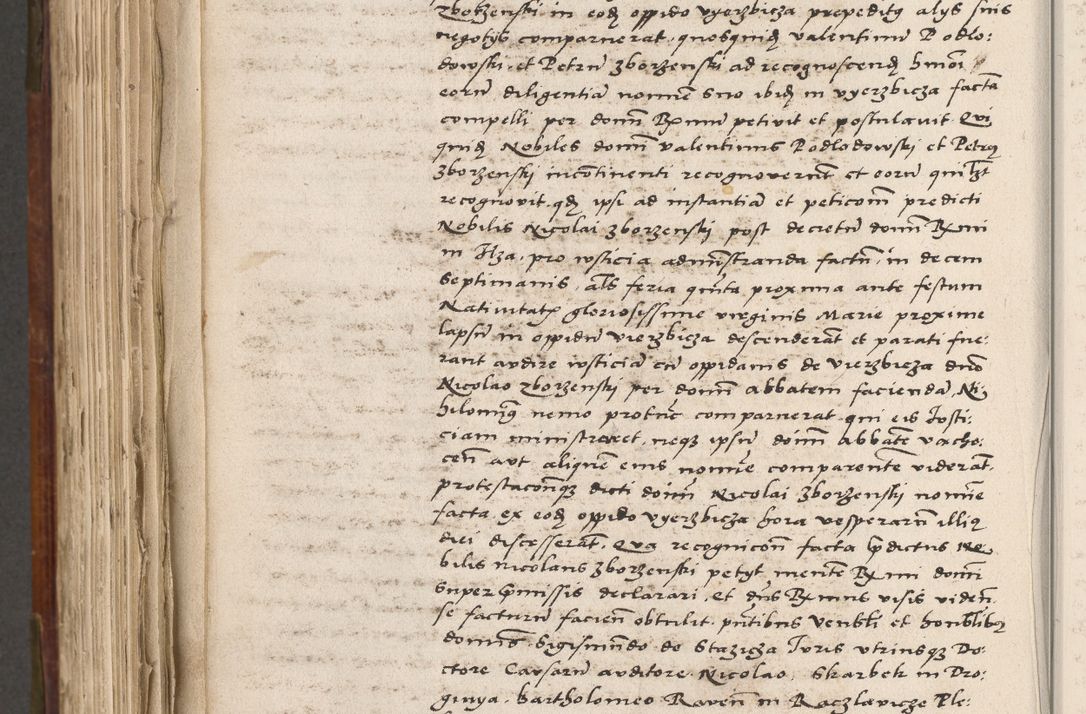 Zborzenski in eodē oppido vyerzbicza prepeditq alys suis
negotys comparuerat, quosquidē valentinū Podlo:
dowski, et Petrū Zborzenski ad recognoscendū hmōi
eorū diligentiā nomīe suo ibidē in vyerzbicza factā
compelli per domīn Rxmū petivit et postulavit. Qui
quidē Nobiles domī valentinus Podlodowski et Petrq
Zborzenski incōtinenti recognoverunt et eorū quilzt
recognovit, qdē ipsi ad instantiā et peticōm predicti
Nobilis Nicolai Zborzenski post decretū domī Rxmi
in Ilza, pro iusticia admīstranda factū, in decem
septimanis, als feria quīta proxima ante festum
Nativitatx gloriosissime virginis Marie proxime
lapsū in oppidū vierzbicza descenderāt et parati fue:
rant audire iusticiā cū oppidanis de vierzbicza dno
Nicolao Zborzenski per domī abbatem faciendā, Ni:
hilomīq nemo protūc comparuerat qui eis Iusti:
ciam ministraret, neqz ipsū domī Abbatē vacho:
cen aut aliquē eius nomīe comparentē viderāt,
protestacōnēqz dicti domī Nicolai Zborzenski nomīe
facta, ex eodē oppido vyerzbicza hora vesperarū illiq
diei discesserāt. Qua recognicōn facta pdictus No
bilis Nicolaus Zborzenski petyt mentē Rxmi domī
super pmissis declarari, et dns Rxmus visis viden
se facturū facien obtulit. pntibus venbli et honblibq
domīs Sigismūndo de Stazicza Iuris utriusqz Do:
ctore Causarū auditore Nicolao, Skarbek in Dro:
ginya, Bartholomeo Raven in Raczlavicze Ple: